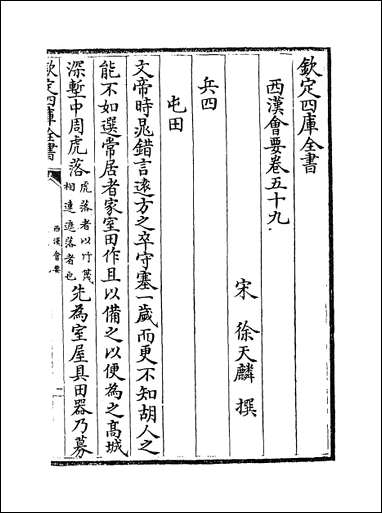 欽定四庫全書
西漢會要卷五十九
宋 徐天麟 撰
兵四
屯田
文帝時鼂錯言遠方之卒守塞一歲而更不知胡人之
能不如選常居者家室田作且以備之以便為之髙城
深塹中周虎落虎落者以竹篾相連遮落者也先為室屋具田器乃募
欽定四庫全書
西漢會要
一